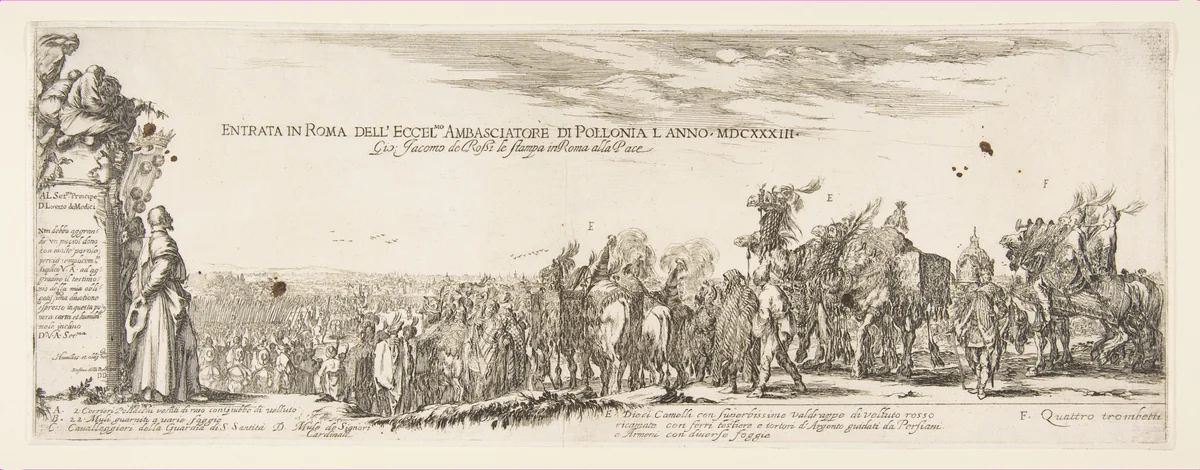 ENTRATA IN ROMA DELL' ECCEL.MO AMBASCIATORE DI POLLONIA L ANNO · MDCXXXIII ·
Gio: Jacomo de Rossi le stampa in Roma alla Pace
AL Ser.mo Principe
D Lorenzo de Medici
Non debbo aggran
dir un picciol dono
con molte parole,
D.V.A. Ser.ma
E
E
F
A. 2. Corrieri Pollacchi vestiti di raso con Giubbe di velluto
B. 22 Muli guarniti a varie foggie
C. Cavalleggieri della Guardia di S. Santità D. Mule de Signori
Cardinali
E. Dieci Camelli con superbissime valdrappe di velluto rosso
ricamate con ferri testiere e tortori d'Argento guidati da Persiani
o Armeni con diverse foggie
F. Quattro trombetti